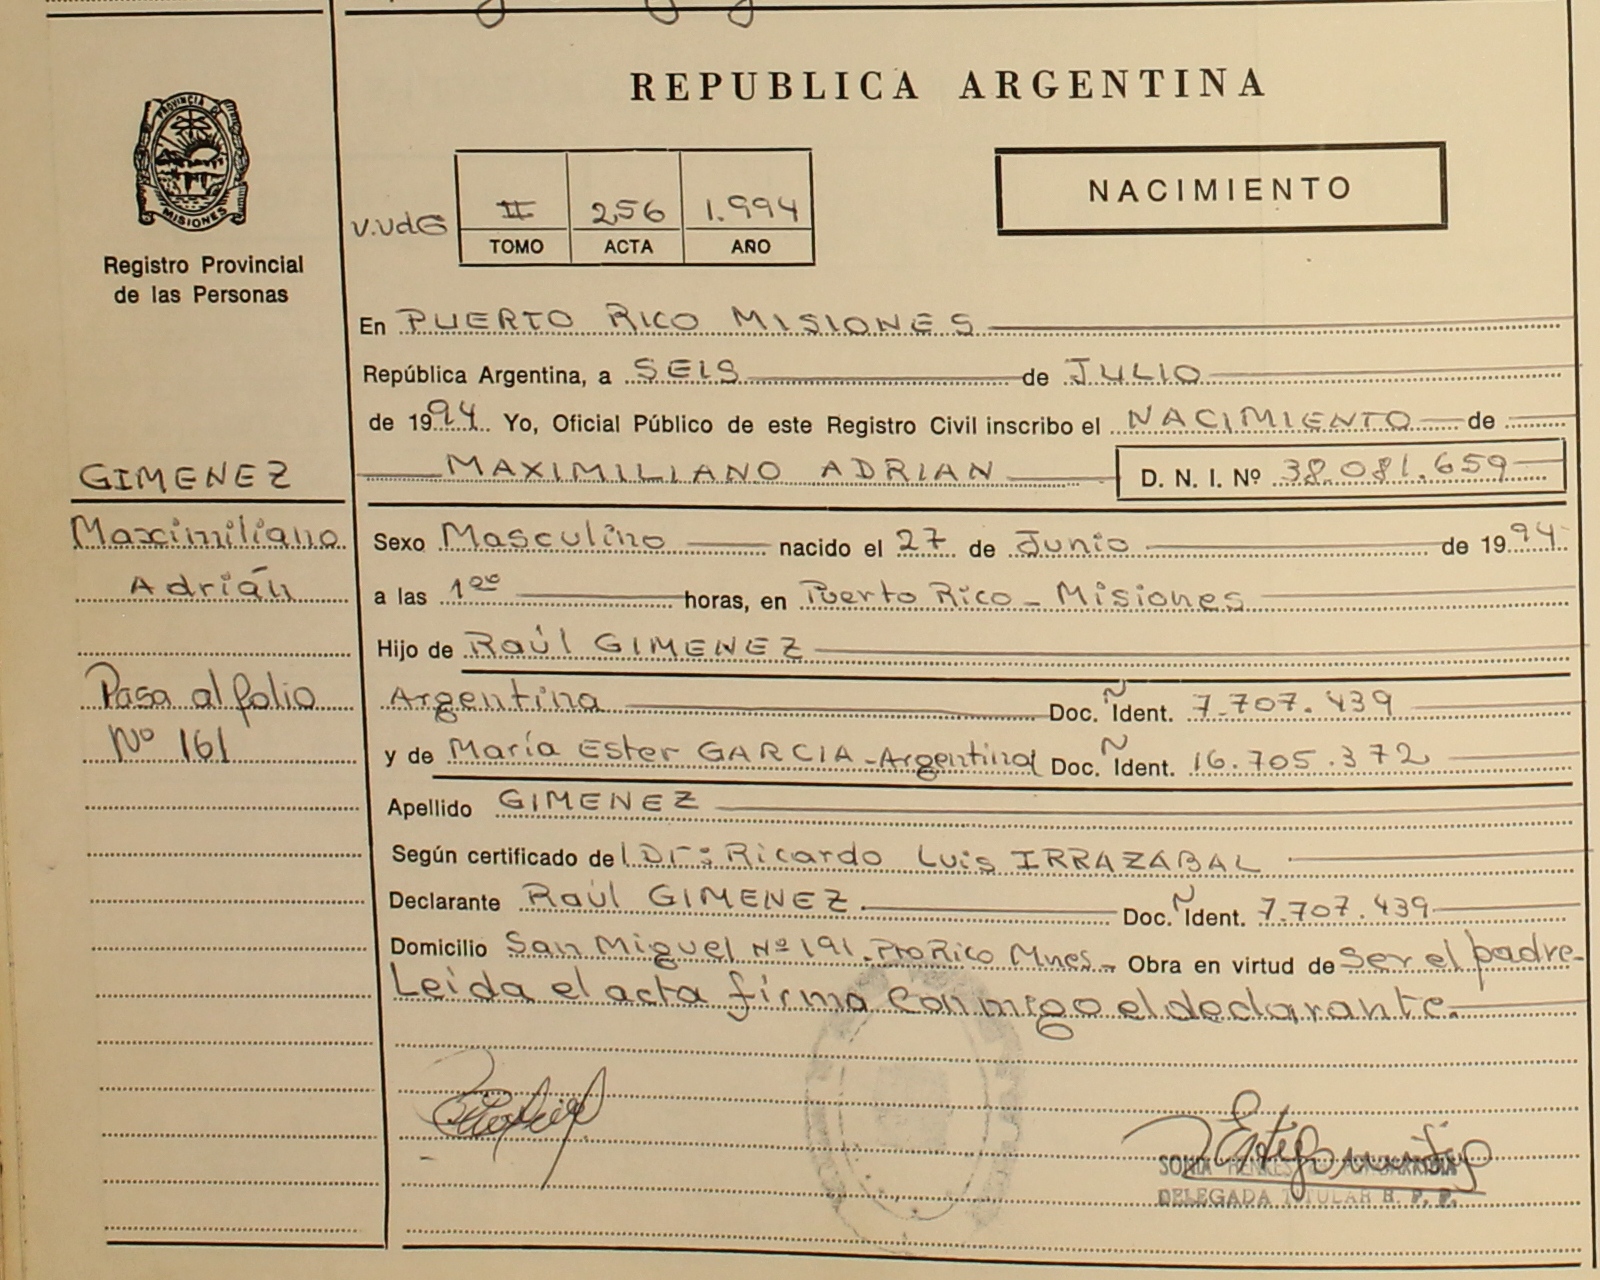 REPUBLICA ARGENTINA
PROVINCIA DE
MISIONES
Registro Provincial
de las Personas
NACIMIENTO
V.VdG
II 256 1.994
TOMO ACTA AÑO
En PUERTO RICO MISIONES
República Argentina, a SEIS de JULIO
de 1994 Yo, Oficial Público de este Registro Civil inscribo el NACIMIENTO de
MAXIMILIANO ADRIAN D. N. I. Nº 38.081.659
GIMENEZ
Maximiliano
Adrián
Pasa al folio
Nº 161
Sexo Masculino nacido el 27 de Junio de 1994
a las 1⁰⁰ horas, en Puerto Rico - Misiones
Hijo de Raúl GIMENEZ
Argentina Doc. Ident. 7.707.439
y de María Ester GARCIA - Argentina Doc. Ident. 16.705.372
Apellido GIMENEZ
Según certificado del Dr: Ricardo Luis IRRAZABAL
Declarante Raúl GIMENEZ. Doc. Ident. 7.707.439
Domicilio San Miguel Nº 191. Pto Rico Mnes - Obra en virtud de ser el padre-
Leída el acta firma conmigo el declarante.
SONIA
DELEGADA TITULAR R. P. P.